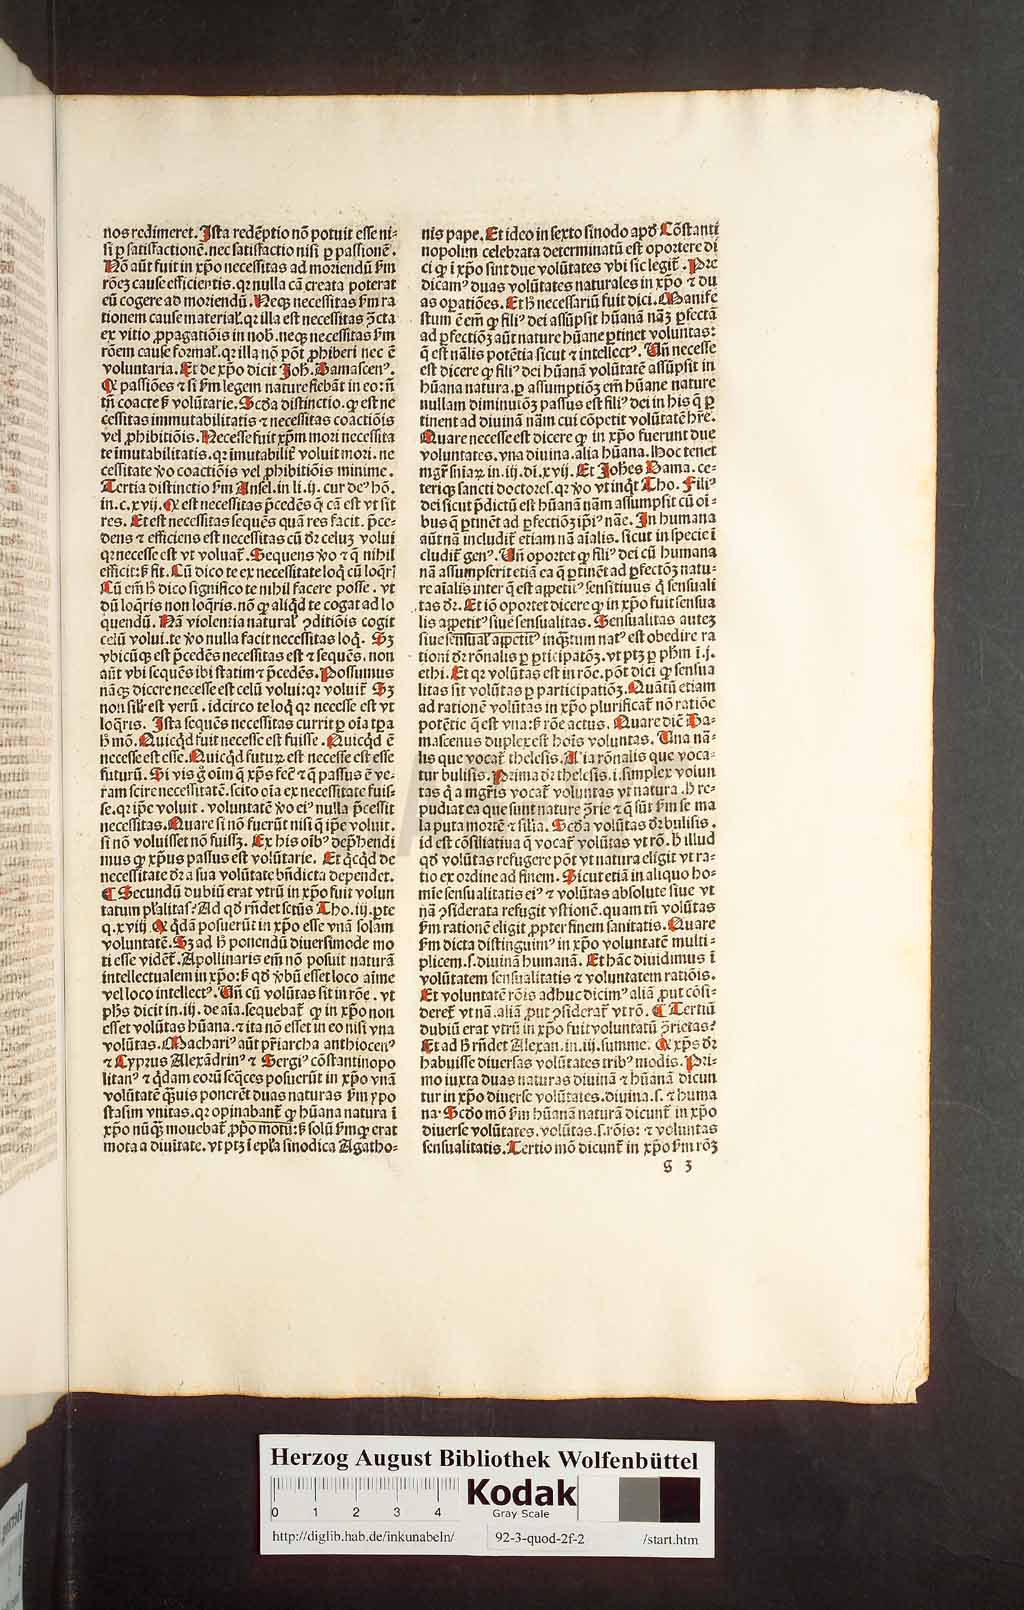 nos redimeret. Ista redẽptio nõ potuit esse ni-
si ꝑ satisfactionẽ. nec satisfactio nisi ꝑ passionẽ.
Nõ aũt fuit in xp̃o necessitas ad moriendũ ẜm
rõeʒ cause efficientis. qꝛ nulla cã creata poterat
eũ cogere ad moriendũ. Neqʒ necessitas ẜm ra
tionem cause material̃. qꝛ illa est necessitas ꝯ̃cta
ex vitio ꝓpagatiõis in nob̃. neqʒ necessitas ẜm
rõem cause formal̃. qꝛ illa nõ põt ꝓhiberi nec ẽ
voluntaria. Et de xp̃o dicit Joh̃. Damascenꝰ.
Qꝙ passiões ⁊ si ẜm legem nature fiebãt in eo: ñ
tñ coacte ß volũtarie. Scd̃a distinctio. ꝙ est ne
cessitas immutabilitatis ⁊ necessitas coactiõis
vel ꝓhibitiõis. Necesse fuit xp̃m mori necessita
te ĩmutabilitatis. qꝛ ĩmutabilit̃ voluit mori. ne
cessitate ꝟo coactiõis vel ꝓhibitiõis minime.
Tertia distinctio ẜm Ansel. in li. ij. cur deꝰ hõ.
in. c. xvij. Qꝙ est necessitas p̃cedẽs q̃ cã est vt sit
res. Et est necessitas sequẽs quã res facit. p̃ce-
dens ⁊ efficiens est necessitas cũ dꝛ̃ celuʒ volui
qꝛ necesse est vt voluat̃. Sequens ꝟo ⁊ q̃ nihil
efficit: ß fit. Cũ dico te ex necessitate loq̃ cũ loq̃rĩ
Cũ em̃ ħ dico significo te nihil facere posse. vt
dũ loq̃ris non loq̃ris. nõ ꝙ aliqd̃ te cogat ad lo
quendũ. Nã violentia natural̃ ꝯditiõis cogit
celũ volui. te ꝟo nulla facit necessitas loq̃. Sʒ
vbicũqʒ est p̃cedẽs necessitas est ⁊ sequẽs. non
aũt vbi sequẽs ibi statim ⁊ p̃cedẽs. Possumus
nãqʒ dicere necesse est celũ volui: qꝛ voluit̃ Sʒ
non sil̃r est verũ. idcirco te loq̃ qꝛ necesse est vt
loq̃ris. Ista sequẽs necessitas currit ꝑ oĩa tp̃a
ħ mõ. Quicqd̃ fuit necesse est fuisse. Quicqd̃ ẽ
necesse est esse. Quicqd̃ futuꝝ est necesse est esse
futurũ. Si vis g̊ oĩm q̃ xp̃s fec̃ ⁊ q̃ passus ẽ ve-
ram scire necessitatẽ. scito oĩa ex necessitate fuis-
se. qꝛ ip̃e voluit. voluntatẽ ꝟo eiꝰ nulla p̃cessit
necessitas. Quare si nõ fuerũt nisi q̃ ip̃e voluit.
si nõ voluisset nõ fuissʒ. Ex his oĩbꝰ dep̃hendi
mus ꝙ xp̃us passus est volũtarie. Et q̃cqd̃ de
necessitate dꝛ̃ a sua volũtate bñdicta dependet.
¶ Secundũ dubiũ erat vtrũ in xp̃o fuit volun
tatum pl̃alitas? Ad qd̃ rñdet sct̃us Tho. iij. ꝑte
q. xviij Qꝙ q̃dã posuerũt in xp̃o esse vnã solam
voluntatẽ. Sʒ ad ħ ponendũ diuersimode mo
ti esse videt̃. Apollinaris em̃ nõ posuit naturã
intellectualem in xp̃o: ß qd̃ ꝟbũ esset loco aĩme
vel loco intellectꝰ. Vñ cũ volũtas sit in rõe. vt
ph̃s dicit in. iij. de aĩa. sequebat̃ ꝙ in xp̃o non
esset volũtas hũana. ⁊ ita nõ esset in eo nisi vna
volũtas. Machariꝰ aũt pr̃iarcha anthiocenꝰ
⁊ Cyprus Alexãdrinꝰ ⁊ Sergiꝰ cõstantinopo
litanꝰ ⁊ q̃dam eorũ seq̃ces posuerũt in xp̃o vnã
volũtatẽ q̃uis ponerẽt duas naturas ẜm ypo
stasim vnitas. qꝛ opinabant̃ ꝙ hũana natura ĩ
xp̃o nũq̃ʒ mouebat̃ ꝓp̃o motu: ß solũ ẜm ꝙ erat
mota a diuitate. vt ptʒ ĩ epl̃a sinodica Agatho-
nis pape. Et ideo in sexto sinodo apd̃ Cõstanti
nopolim celebrata determinatũ est oportere di
ci ꝙ ĩ xp̃o sint due volũtates vbi sic legit̃. Pre
dicamꝰ duas voluntates naturales in xp̃o ⁊ du
as oꝑatiões. Et ħ necessariũ fuit dici. Manife
stum ẽ em̃ ꝙ filiꝰ dei assũpsit hũanã nãʒ ꝑfectã
ad ꝑfectiõʒ aũt nature hũane ꝑtinet voluntas:
q̃ est nãlis potẽtia sicut ⁊ intellectꝰ. Vñ necesse
est dicere ꝙ filiꝰ dei hũanã volũtatẽ assũpsit in
hũana natura. ꝑ assumptiõʒ em̃ hũane nature
nullam diminuiõʒ passus est filiꝰ dei in his q̃ ꝑ
tinent ad diuinã nãm cui cõpetit volũtatẽ hr̃e.
Quare necesse est dicere ꝙ in xp̃o fuerunt due
voluntates. vna diuina. alia hũana. Hoc tenet
mgr̃ sñiaꝝ in. iij. di. xvij. Et Joh̃es Dama. ce-
teriqʒ sancti doctores. qꝛ ꝟo vt inq̃t Tho. Filiꝰ
dei sicut p̃dictũ est hũanã nãm assumpsit cũ oĩ-
bus q̃ ꝑtinẽt ad ꝑfectiõʒ ip̃iꝰ nãe. In humana
aũt nã includit̃ etiam nã aĩalis. sicut in specie ĩ
cludit̃ genꝰ. Vñ oportet ꝙ filiꝰ dei cũ humana
nã assumpserit etiã ea q̃ ꝑtinẽt ad ꝑfectõʒ natu-
re aĩalis inter q̃ est appetitꝰ sensitiuus q̃ sensuali
tas dꝛ̃. Et iõ oportet dicere ꝙ in xp̃o fuit sensua
lis appetitꝰ siue sensualitas. Sensualitas auteʒ
siue sensual̃ appetitꝰ inq̃ʒtum natꝰ est obedire ra
tioni dꝛ̃ rõnalis ꝑ ꝑticipatõʒ. vt ptʒ ꝑ ph̃m ĩ. j.
ethi. Et qꝛ volũtas est in rõe. põt dici ꝙ sensua
litas sit volũtas ꝑ participatiõʒ. Quãtũ etiam
ad rationẽ volũtas in xp̃o plurificat̃ nõ ratiõe
potẽtie q̃ est vna: ß rõe actus. Quare diẽ Da-
mascenus duplex est hoĩs voluntas. Una nã-
lis que vocat̃ thelesis. Alia rõnalis que voca-
tur bulisis. Prima dꝛ̃ thelesis. i. simplex volun
tas q̃ a mgr̃is vocat̃ voluntas vt natura. ħ re-
pudiat ea que sunt nature ꝯ̃rie ⁊ q̃ sũt ẜm se ma
la puta mortẽ ⁊ silia. Scd̃a volũtas dꝛ̃ bulisis.
id est cõsiliatiua q̃ vocat̃ volũtas vt rõ. ħ illud
qd̃ volũtas refugere põt vt natura eligit vt ra-
tio ex ordine ad finem. Sicut etiã in aliquo ho-
mĩe sensualitatis eiꝰ ⁊ volũtas absolute siue vt
nã ꝯsiderata refugit vstionẽ. quam tñ volũtas
ẜm rationẽ eligit ꝓpter finem sanitatis. Quare
ẜm dicta distinguimꝰ in xp̃o voluntatẽ multi-
plicem. s. diuinã humanã. Et hãc diuidimus ĩ
volũtatem sensualitatis ⁊ voluntatem ratiõis.
Et voluntatẽ rõis adhuc dicimꝰ aliã ꝓut cõsi-
deret̃ vt nã. aliã ꝓut ꝯsiderat̃ vt rõ. ¶ Tertiũ
dubiũ erat vtrũ in xp̃o fuit voluntatũ ꝯ̃rietas?
Et ad ħ rñdet Alexan. in. iij. summe. Qꝙ xp̃s dꝛ̃
habuisse diuersas volũtates tribꝰ modis. Pri-
mo iuxta duas naturas diuinã ⁊ hũanã dicun
tur in xp̃o diuerse volũtates. diuina. s. ⁊ huma
na. Scd̃o mõ ẜm hũanã naturã dicunt̃ in xp̃o
diuerse volũtates. volũtas. s. rõis: ⁊ voluntas
sensualitatis. Tertio mõ dicunt̃ in xp̃o ẜm rõʒ
S 3
Herzog August Bibliothek Wolfenbüttel
0 1 2 3 4
Kodak
Gray Scale
http://diglib.hab.de/inkunabeln/ 92-3-quod-2f-2 /start.htm